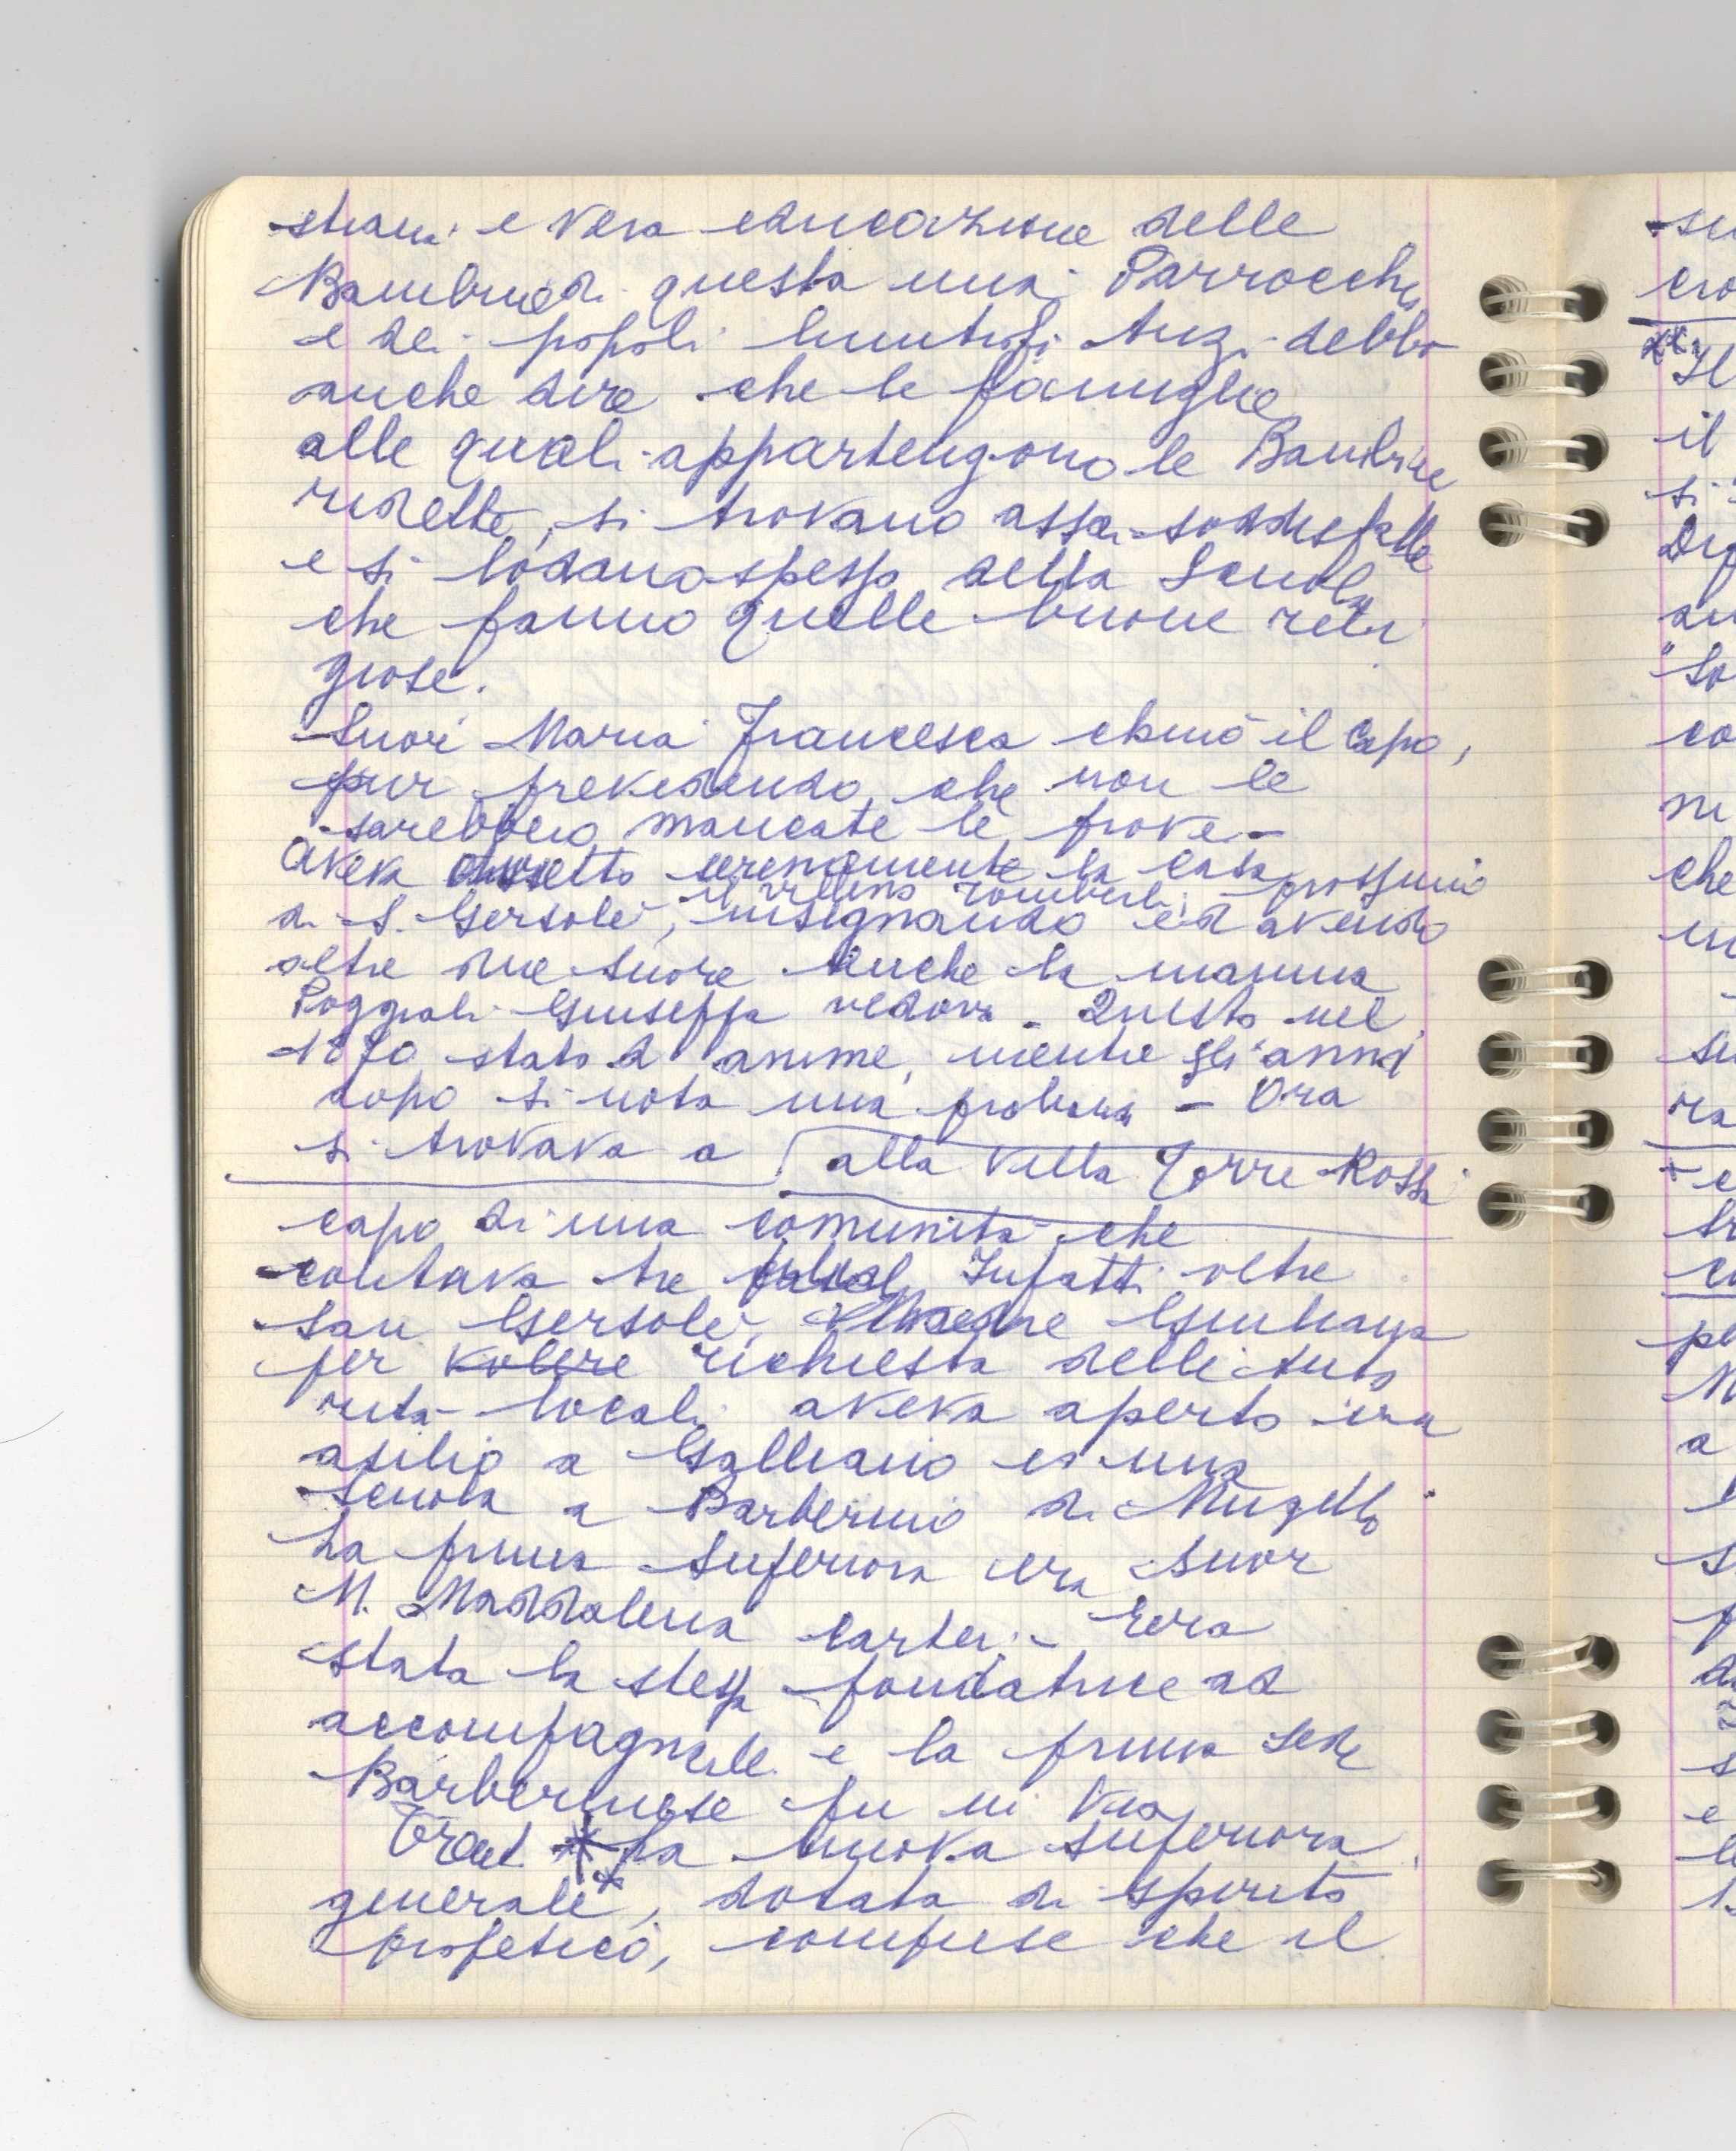 -stiana e vera educazione delle
Bambine di questa mia Parrocchia
e dei popoli limitrofi. Anzi debbo
anche dire che le famiglie
alle quali appartengono le Bambine
ridette, si trovano assai soddisfatte
e si lodano spesso della Scuola
che fanno quelle buone reli
giose.
Suor Maria Francesca chinò il capo,
pur prevedendo che non le
sarebbero mancate le prove -
Aveva diretto serenamente la casa
di S. Gersolè, insegnando ed avendo
oltre due suore anche la mamma
Poggiali Giuseppa vedova. Questo nel
1870 stato d'anime, mentre gli anni
dopo si nota una probanda - Ora
si trovava a alla Villa Torre Rossa
capo di una comunità che
contava tre Infatti oltre
San Gersolè, Madre Giuliana
per volere richiesta delle auto
rità locali aveva aperto un
asilo a Galliano ed una
scuola a Barberino di Mugello
La prima Superiora era Suor
M. Maddalena Carter. - Era
stata la stessa fondatrice ad
accompagnarle e la prima sede
Barberinese fu in Via
* La nuova superiora
generale*, dotata di spirito
profetico, comprese che il
-su
cro
il
si
"So
co
ni
che
a